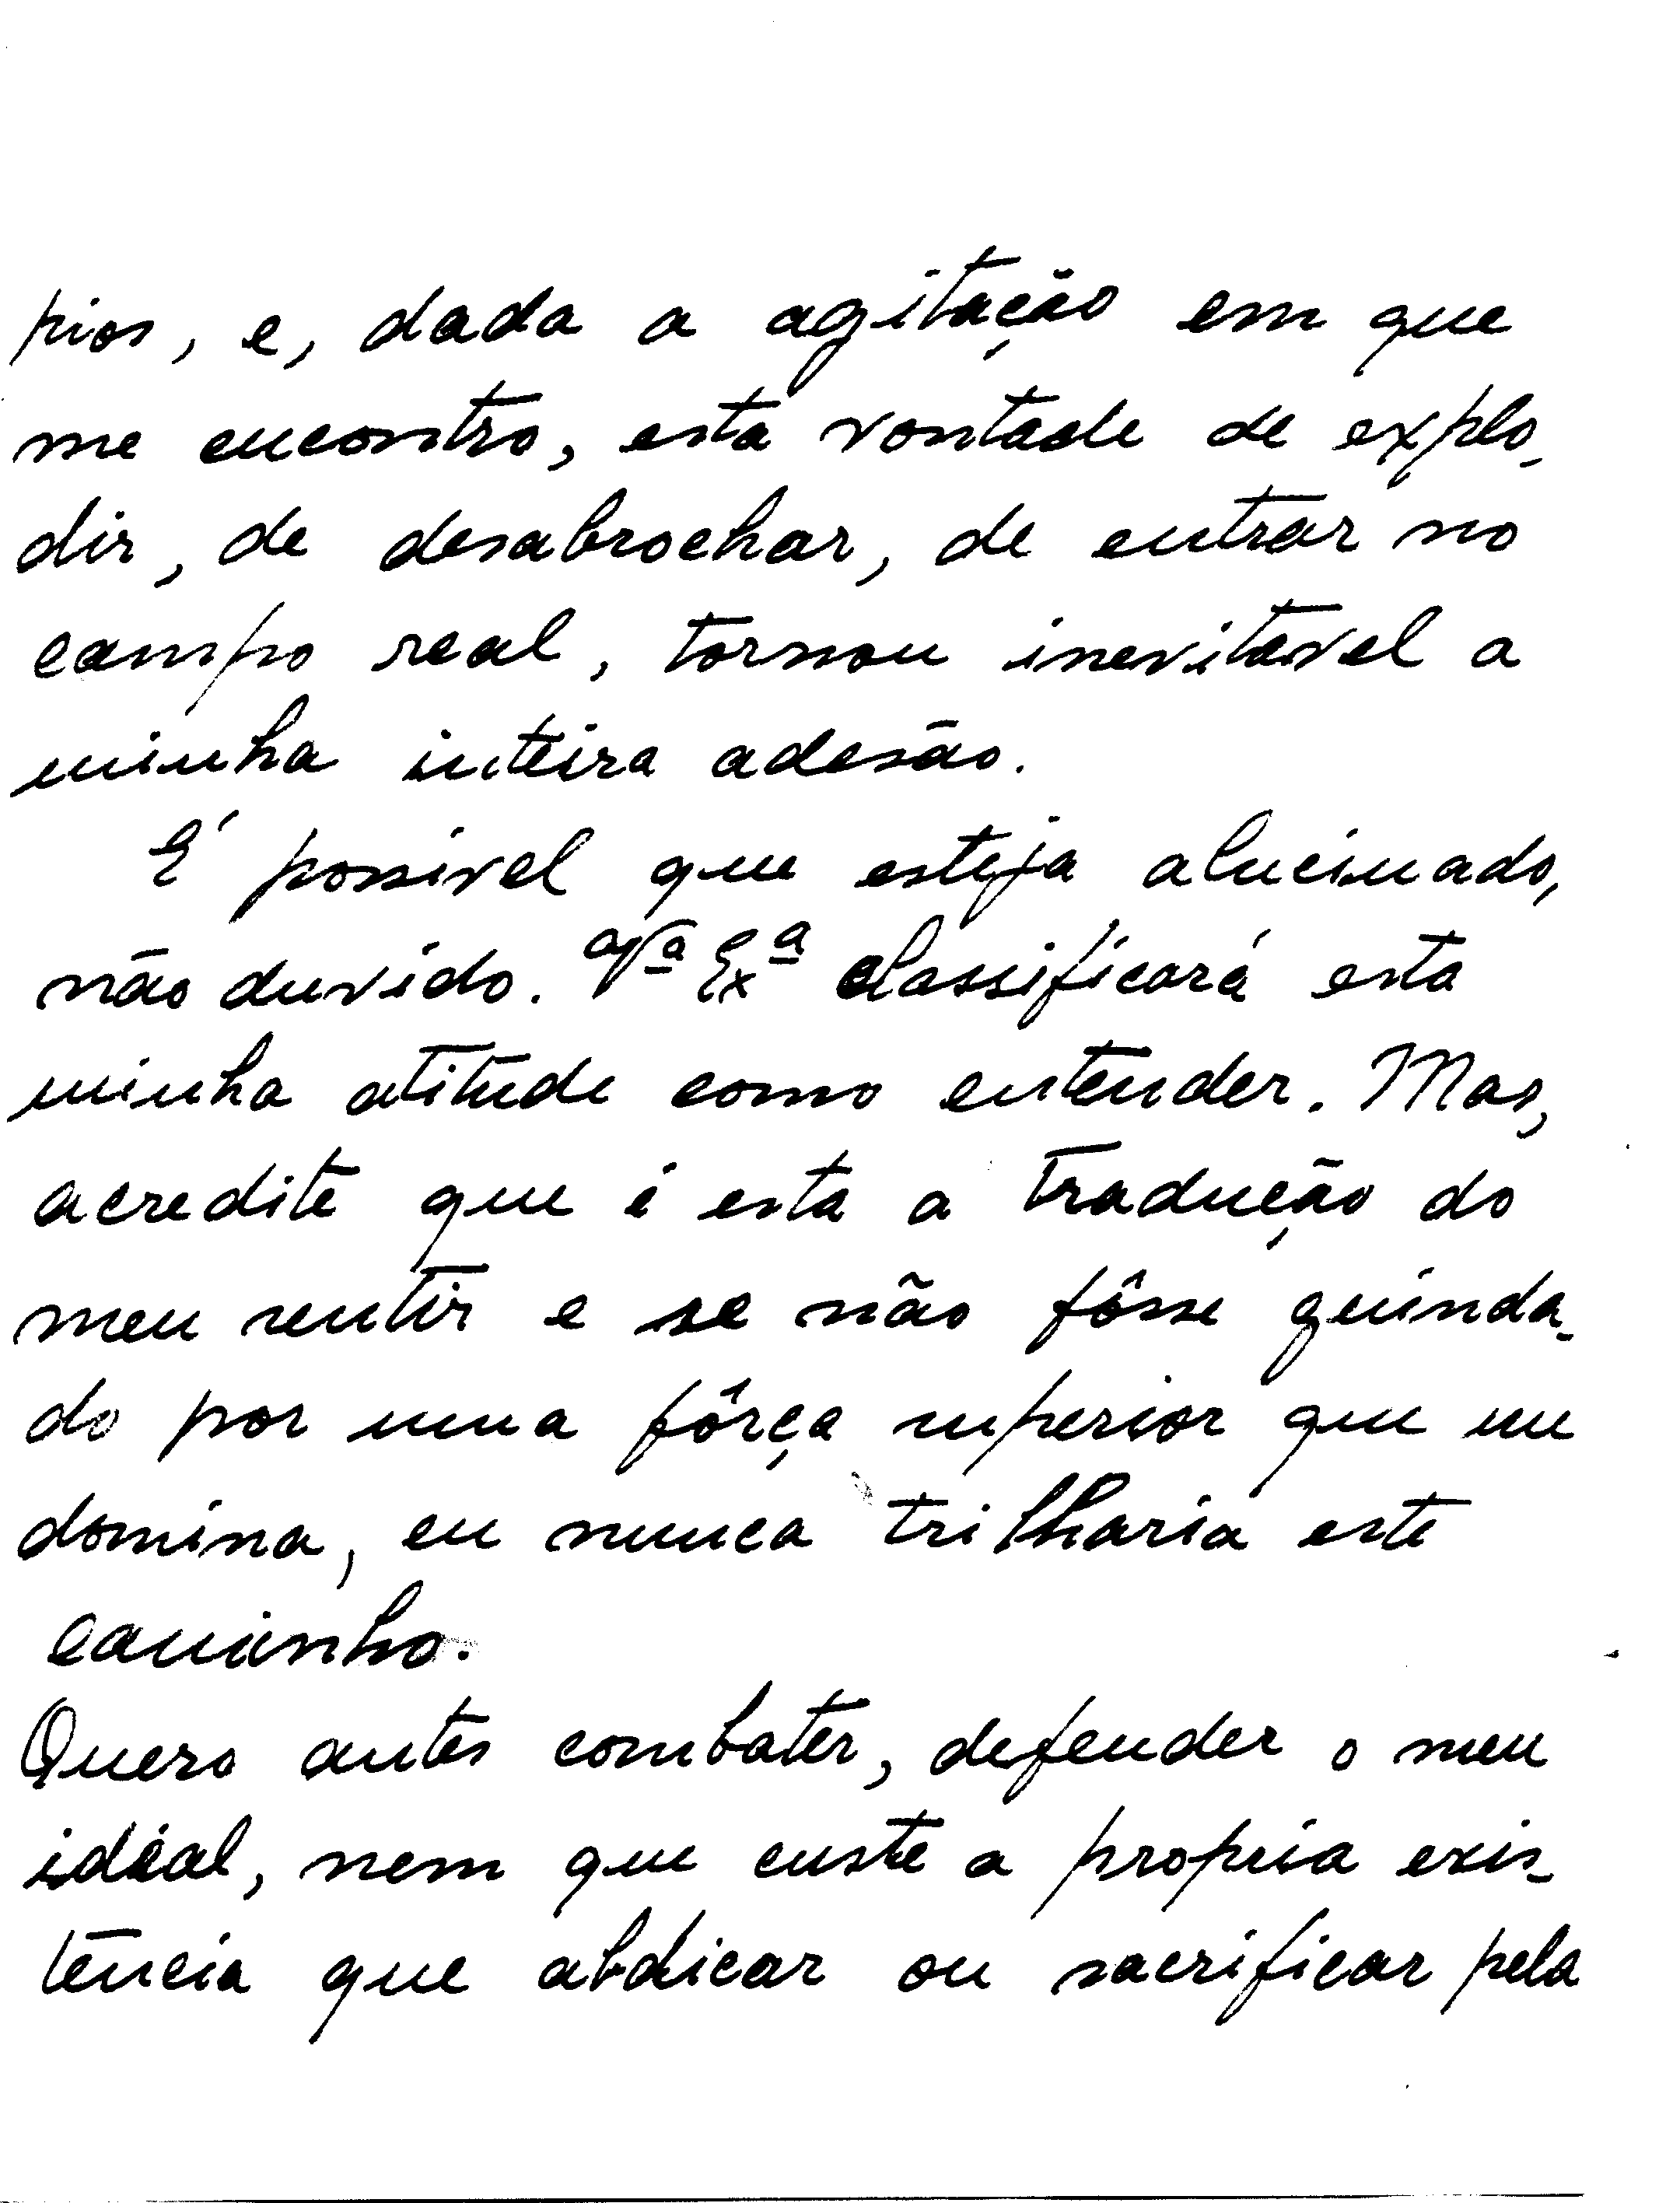 pios, e, dada a agitação em que
me encontro, esta vontade de explo-
dir, de desabrochar, de entrar no
campo real, tornou inevitavel a
minha inteira adesão.
É possivel que esteja alucinado,
não duvido. Vª Exª classificará esta
minha atitude como entender. Mas,
acredite que é esta a tradução do
meu sentir e se não fôsse guinda-
do por uma fôrça superior que me
domina, eu nunca trilharia este
caminho.
Quero antes combater, defender o meu
idéal, nem que custe a propria exis-
tência que abdicar ou sacrificar pela